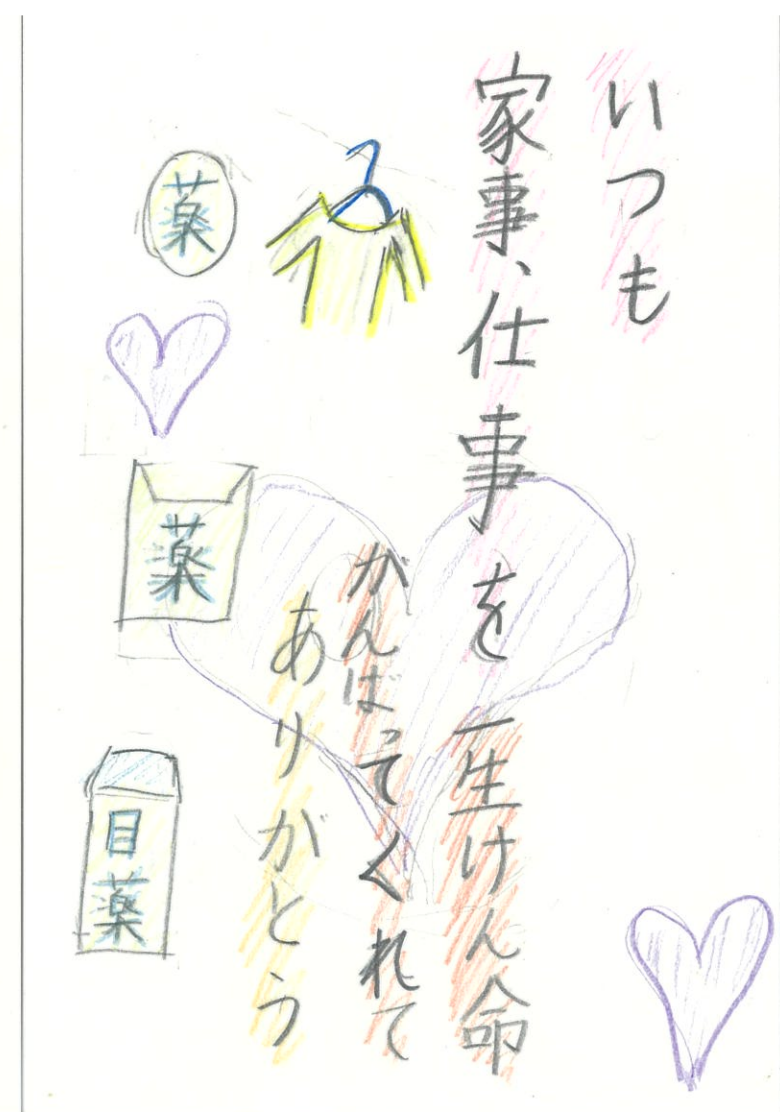 いつも
家事、仕事を一生けん命
がんばってくれて
ありがとう
薬
薬
目薬